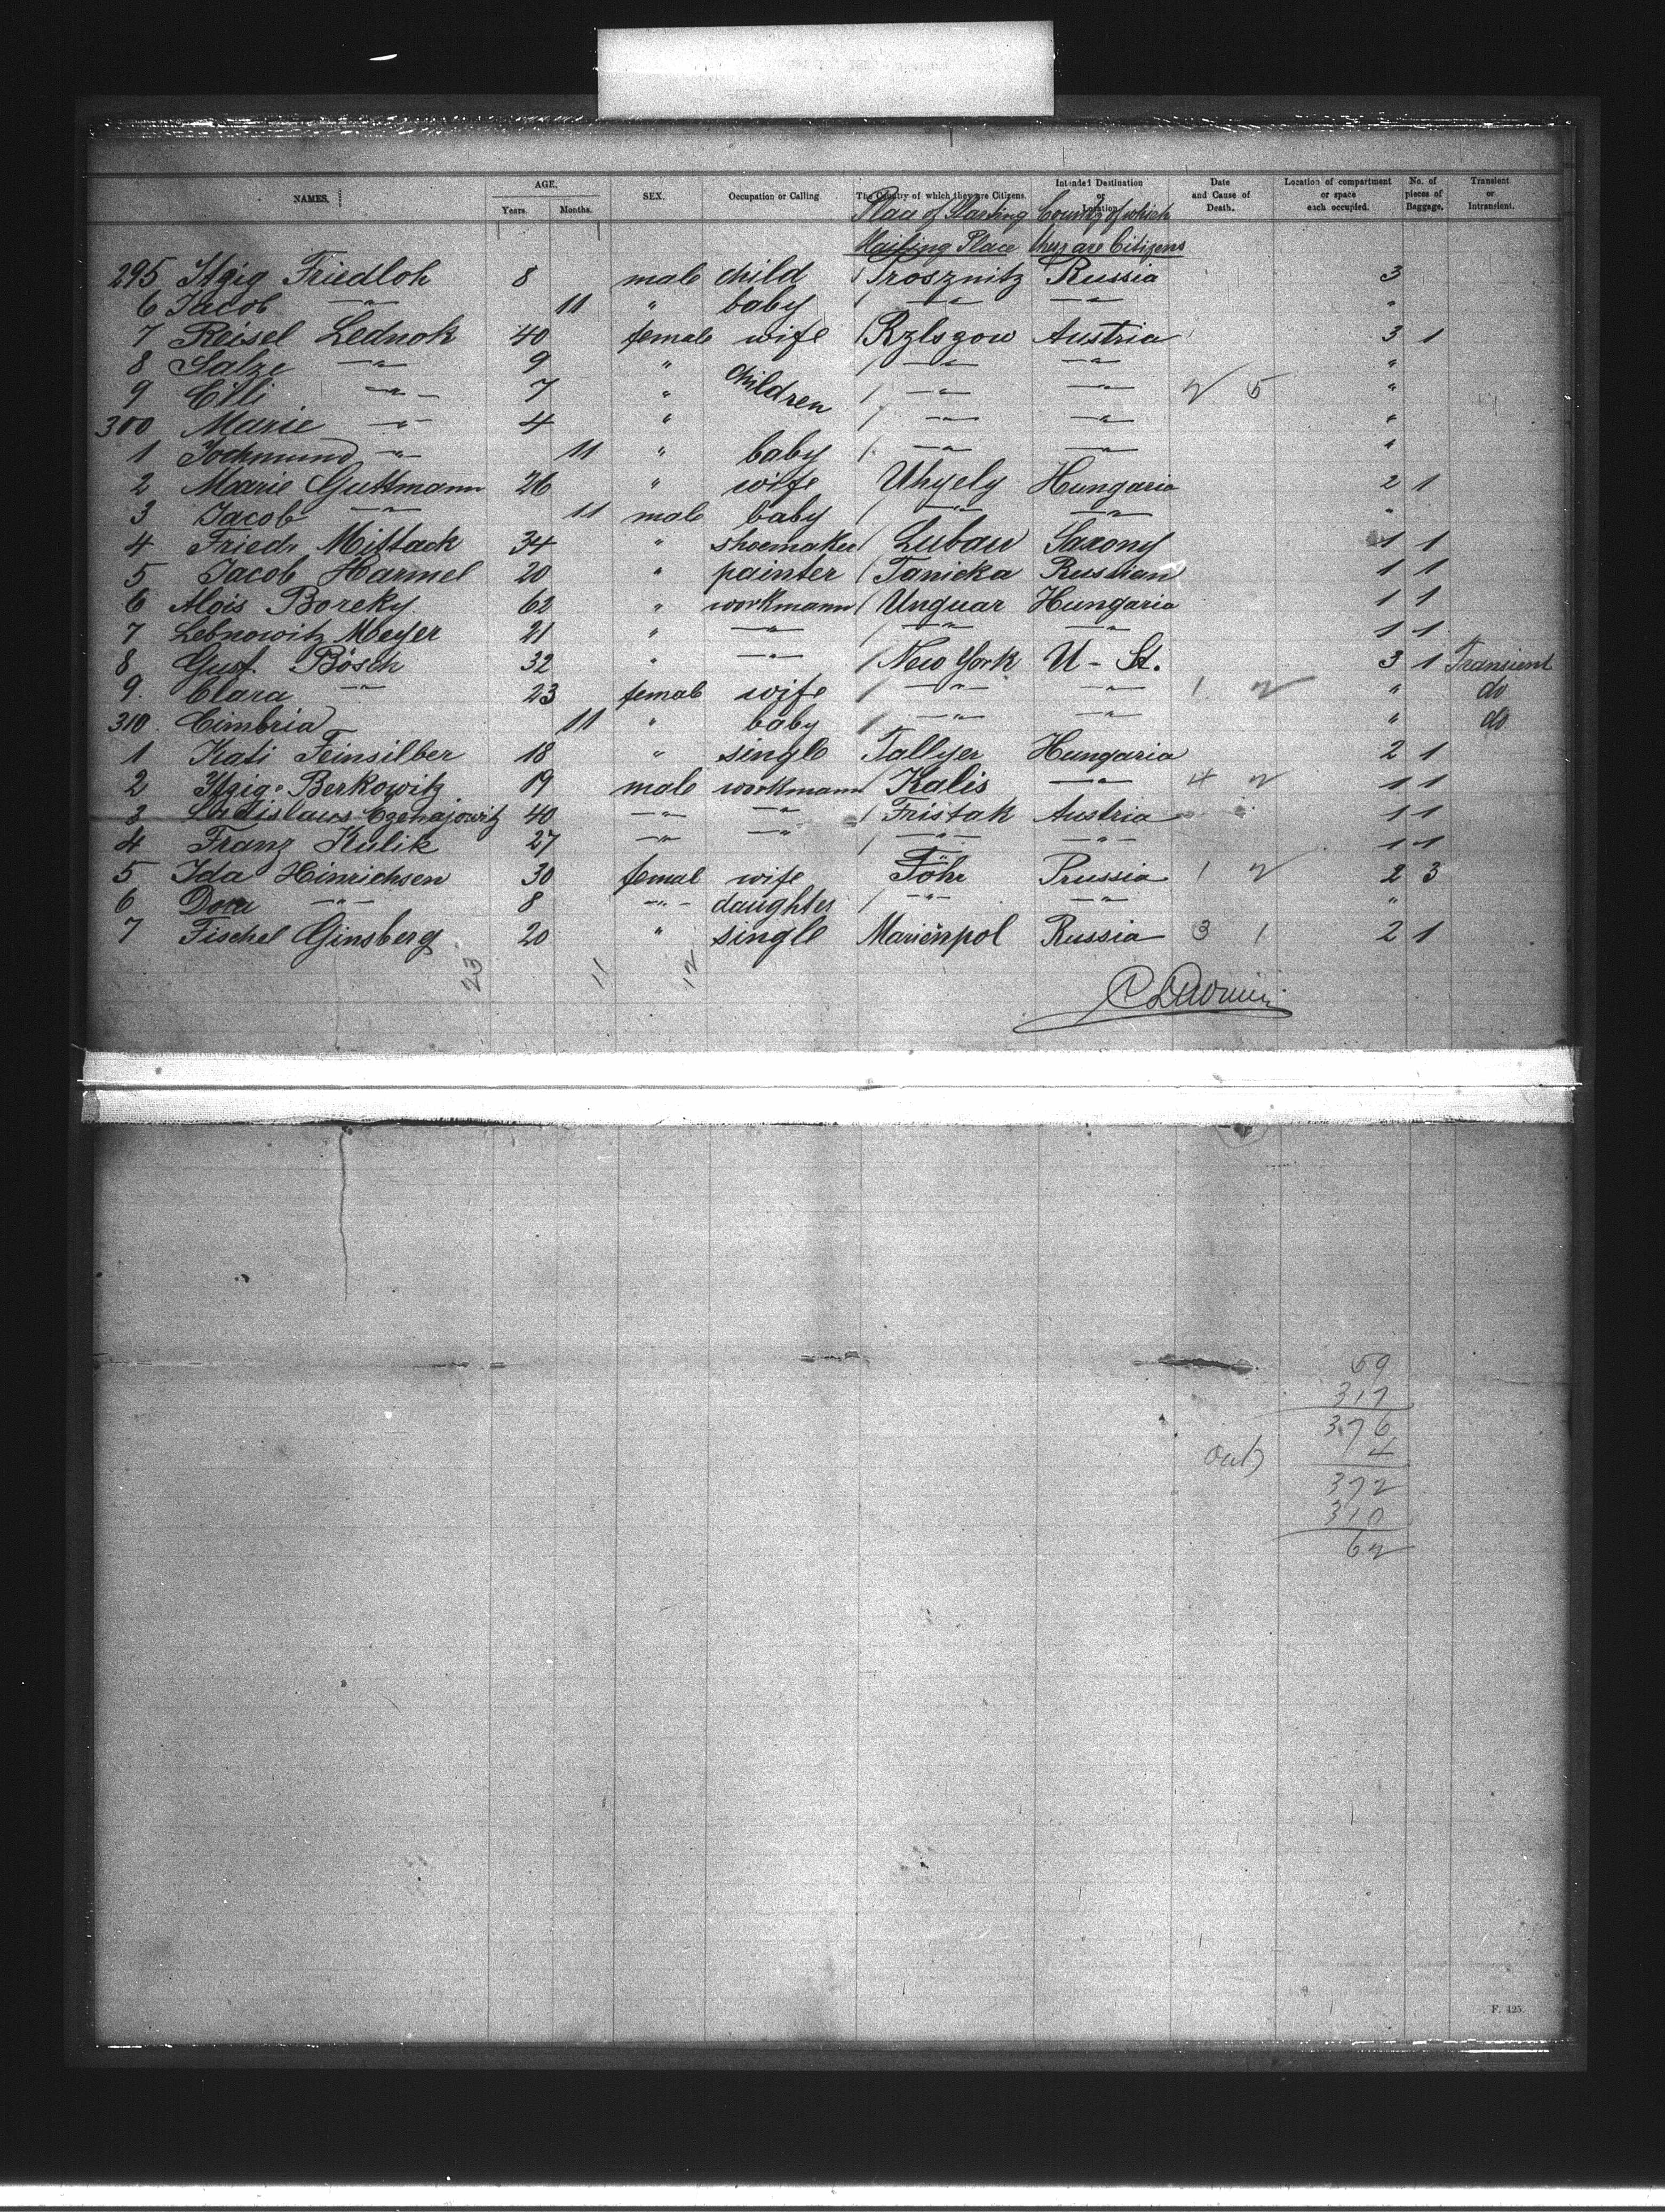 NAMES. AGE. Years. Months. SEX. Occupation or Calling The Country of which they are Citizens. Intended Destination or Location. Date and Cause of Death. Location of compartment or space each occupied. No. of pieces of Baggage. Transient or Intransient.
Place of Starting Country of which
Mailing Place they are Citizens
295 Itzig Friedloh 8 male child Prosznitz Russia 3
6 Jacob -"- 11 " baby -"- -"- "
7 Reisel Lednok 40 female wife Rzlszow Austria 3 1
8 Salze -"- 9 " children -"- -"- "
9 Cilli -"- 7 " -"- -"- 2 5 "
300 Marie -"- 4 " -"- -"- "
1 Jochmund -"- 11 " baby -"- -"- "
2 Marie Guttmann 26 " wife Uhyely Hungaria 2 1
3 Jacob -"- 11 male baby -"- -"- "
4 Friedr. Mittack 34 " shoemaker Lubau Saxony 1 1
5 Jacob Harmel 20 " painter Tanicka Russian 1 1
6 Alois Boreky 62 " workmann Unguar Hungaria 1 1
7 Lebnowitz Meyer 21 " -"- -"- -"- 1 1
8 Gust. Bösch 32 " -"- New York U-St. 3 1 Transient
9. Clara -"- 23 female wife -"- -"- 1 2 " do
310. Cimbria 11 " baby -"- -"- " do
1 Kati Feinsilber 18 " single Tallyer Hungaria 2 1
2 Itzig Berkowitz 19 male workmann Kalis -"- 4 2 1 1
3 Czenajowitz 40 -"- -"- Fristak Austria 1 1
4 Franz Kulik 27 -"- -"- -"- 1 1
5 Ida Hinrichsen 30 femal wife Föhr Prussia 1 2 2 3
6 Dora -"- 8 -"- daughter -"- -"- "
7 Fischel Ginsberg 20 " single Marienpol Russia 3 1 2 1
23 11 12
59
317
376
out) 4
372
310
62
F. 425.